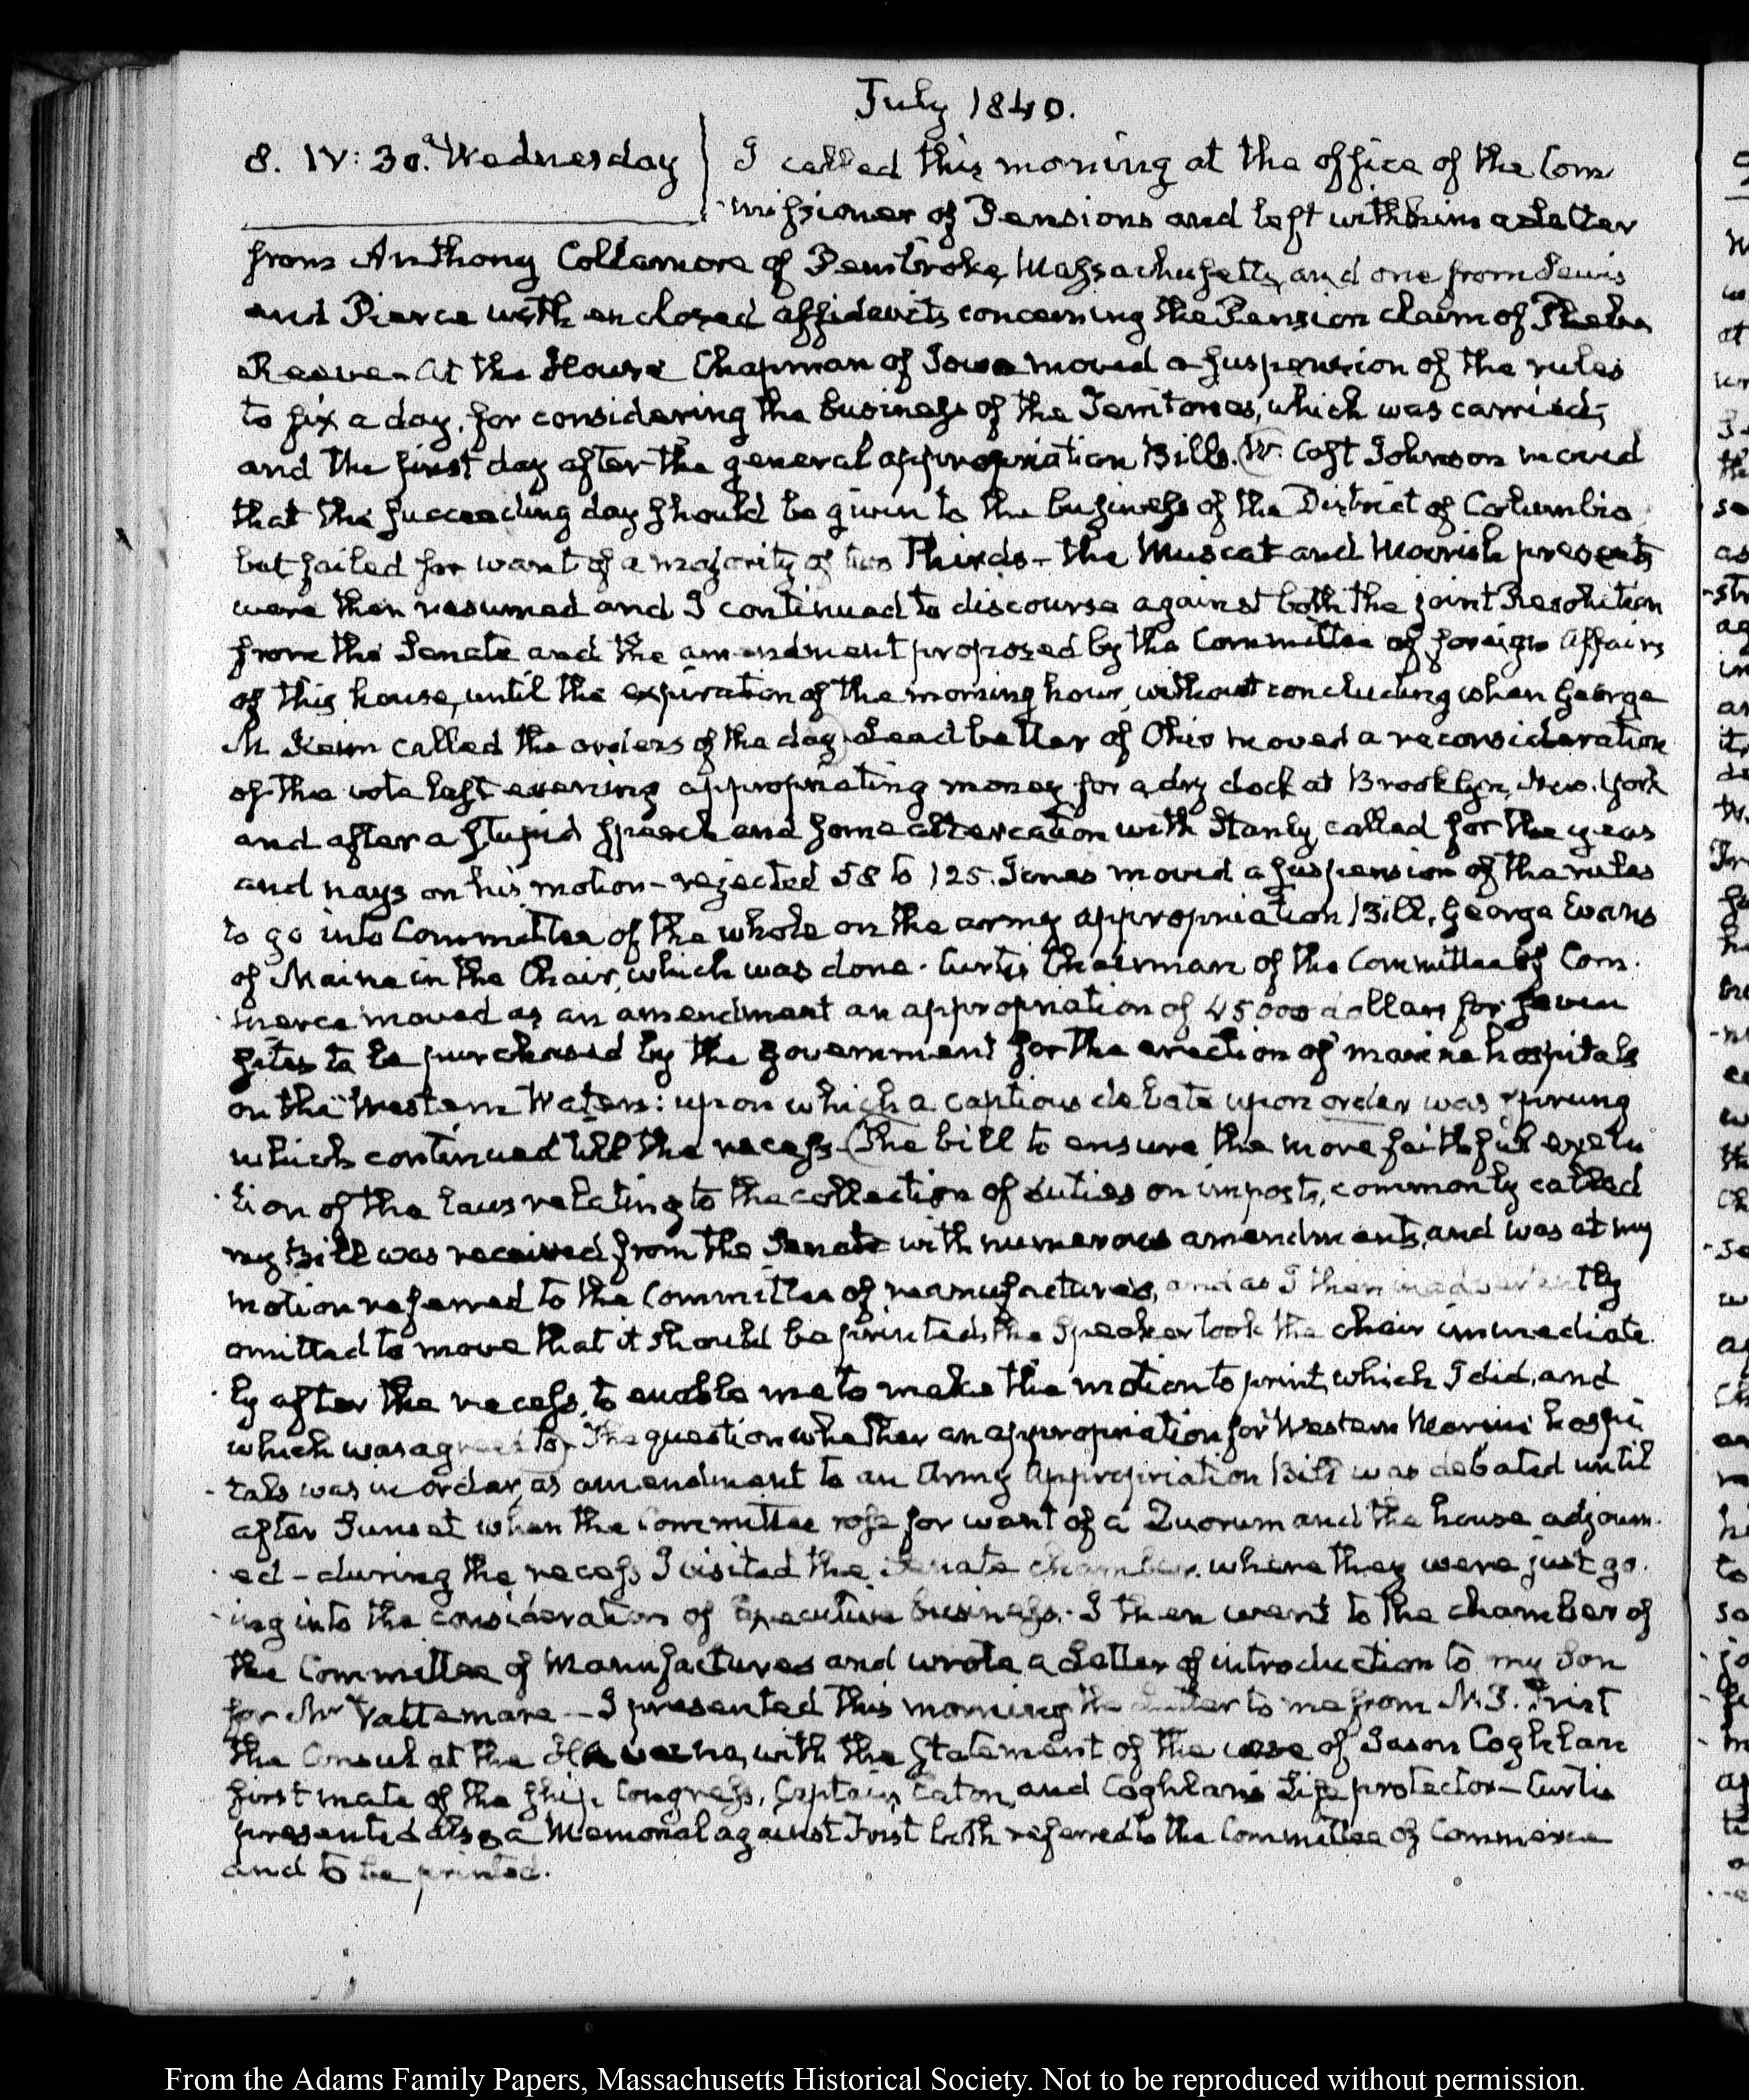 July 1840.
8. IV: 30. Wednesday
I called this morning at the office of the Com
missioner of Pensions and left with him a letter
from Anthony Collamore of Pembroke, Massachusetts, and one from Lewis
and Pierce with enclosed affidavits concerning the Pension claim of Phebe
Reeve - At the House Chapman of Iowa moved a suspension of the rules
to fix a day, for considering the business of the Territories, which was carried;
and the first day after the general appropriation Bills. W. Cost Johnson moved
that the succeeding day should be given to the business of the District of Columbia
but failed for want of a majority of two Thirds - the Muscat and Moorish presents
were then resumed and I continued to discourse against both the joint Resolution
from the Senate and the amendment proposed by the Committee of foreign Affairs
of this house, until the expiration of the morning hour, without concluding when George
M Keim called the orders of the day Leadbetter of Ohio moved a reconsideration
of the vote last evening appropriating money for a dry dock at Brooklyn, New. York
and after a stupid speech and some altercation with Stanly, called for the yeas
and nays on his motion - rejected 58 to 125. Jones moved a suspension of the rules
to go into Committee of the whole on the army appropriation Bill, George Evans
of Maine in the Chair, which was done. Curtis Chairman of the Committee of Com.
merce moved as an amendment an appropriation of 45000 dollars for seven
sites to be purchased by the government for the erection of marine hospitals
on the Western Waters: upon which a captious debate upon order was sprung
which continued till the recess. The bill to ensure the more faithful execu
tion of the laws relating to the collection of duties on imposts, commonly called
my Bill was received from the Senate with numerous amendments, and was at my
motion referred to the Committee of manufactures, and as I then inadvertently
omitted to move that it should be printed, the Speaker took the chair immediate
ly after the recess, to enable me to make the motion to print, which I did, and
which was agreed to. The question whether an appropriation for Western Marine hospi
tals was in order, as amendment to an Army Appropriation Bill was debated until
after Sunset when the Committee rose for want of a Quorum and the house adjourn.
ed - during the recess I visited the Senate chamber, where they were just go.
ing into the consideration of Executive business. - I then went to the chamber of
the Committee of Manufactures and wrote a Letter of introduction to my Son
for Mr Vattemare - I presented this morning the Letter to me from N. P. Trist
the Consul at the Havana, with the statement of the case of Jason Coghlan
first mate of the ship Congress, Captain Eaton, and Coghlan's Life protector - Curtis
presented also a Memorial against Trist both referred to the Committee of Commerce
and to be printed.
From the Adams Family Papers, Massachusetts Historical Society. Not to be reproduced without permission.